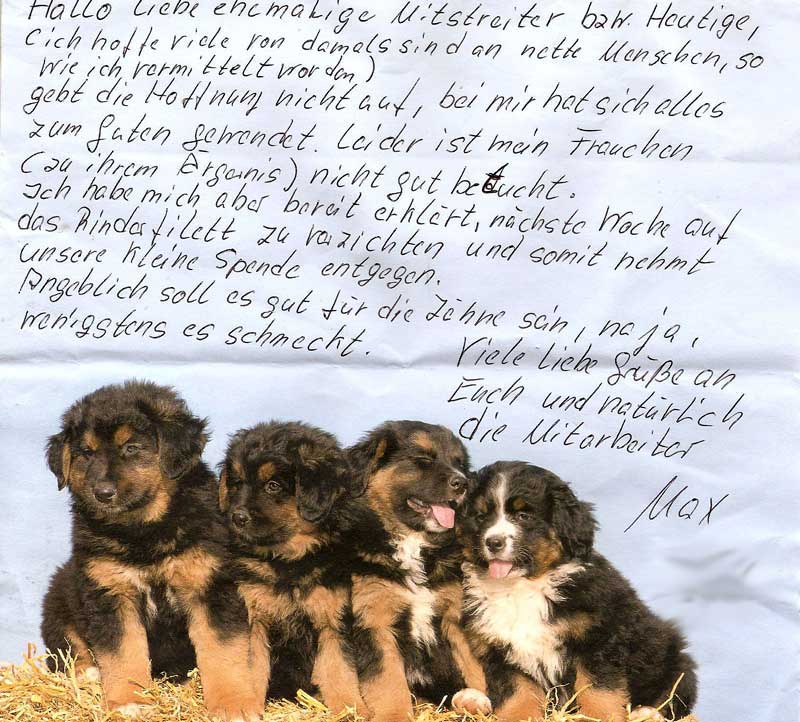 Hallo liebe ehemalige Mitstreiter bzw. Heutige,
(ich hoffe viele von damals sind an nette Menschen, so
wie ich vermittelt worden)
gebt die Hoffnung nicht auf, bei mir hat sich alles
zum Guten gewendet. Leider ist mein Frauchen
(zu ihrem Ärgernis) nicht gut betucht.
Ich habe mich aber bereit erklärt, nächste Woche auf
das Rinderfilett zu verzichten und somit nehmt
unsere kleine Spende entgegen.
Angeblich soll es gut für die Zähne sein, na ja,
wenigstens es schmeckt.
Viele liebe Grüße an
Euch und natürlich
die Mitarbeiter
Max